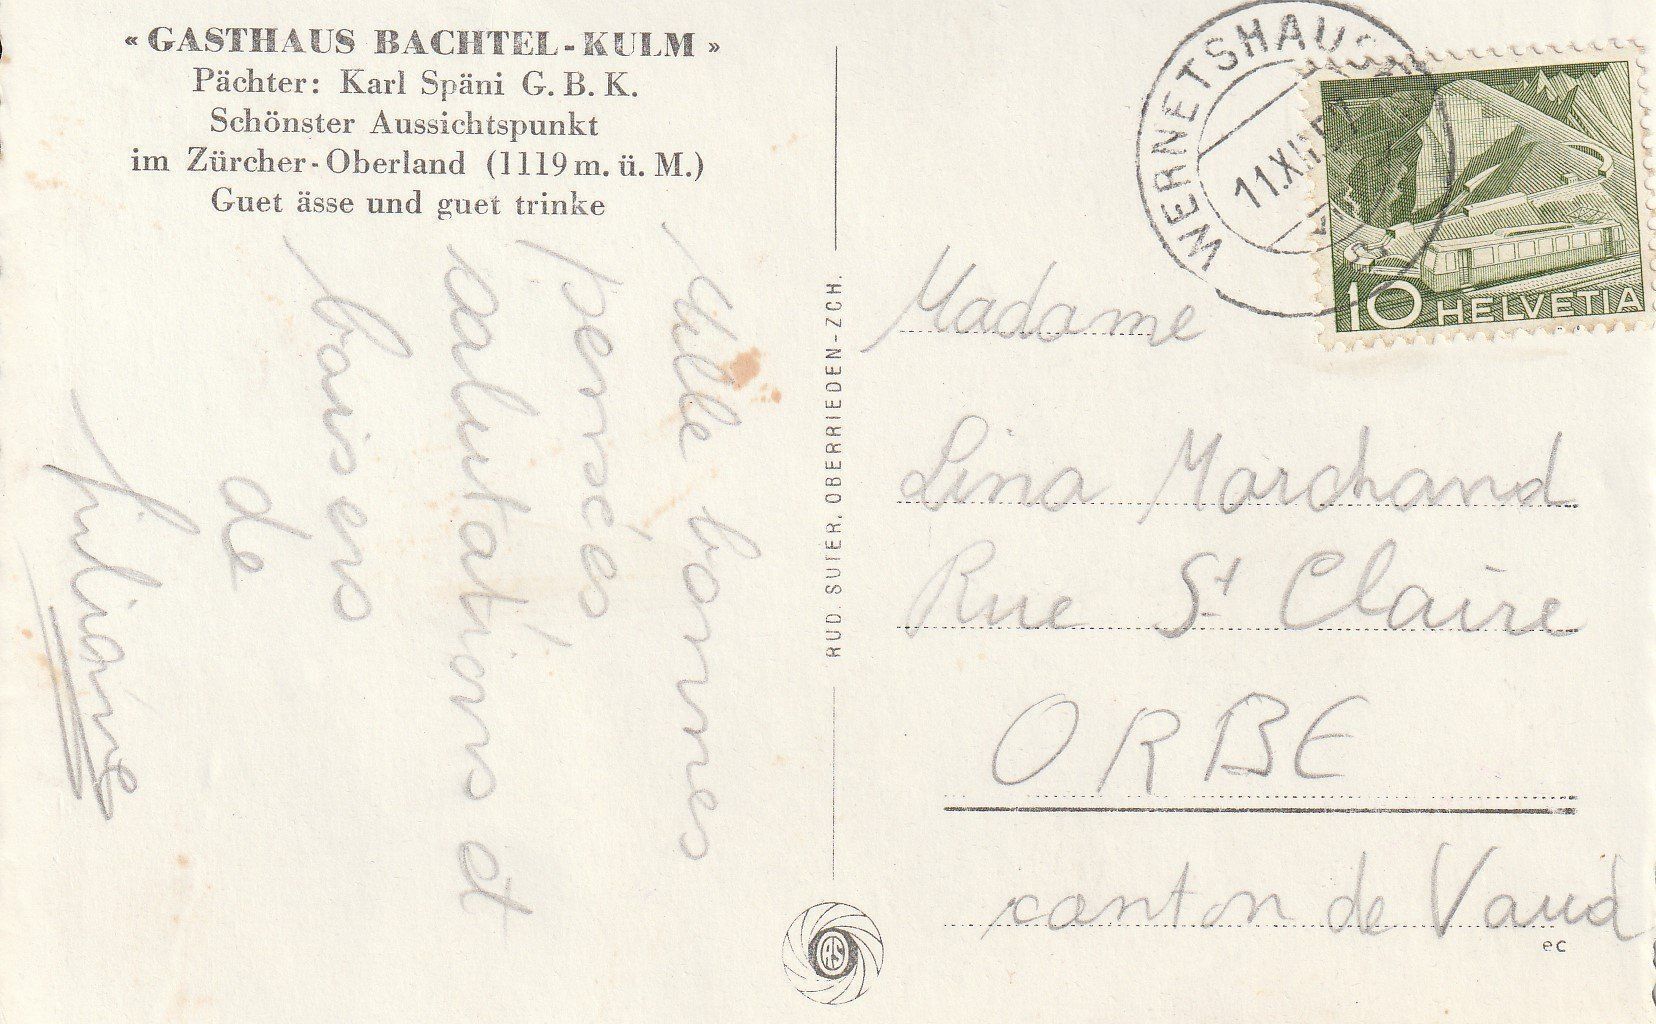 « GASTHAUS BACHTEL-KULM »
Pächter: Karl Späni G. B. K.
Schönster Aussichtspunkt
im Zürcher-Oberland (1119 m. ü. M.)
Guet ässe und guet trinke
Mille bonnes
pensées
salutations et
baisers
de
Juliane
RUD. SUTER, OBERRIEDEN-ZCH.
RS
WERNETSHAUSEN
11.XII.
10 HELVETIA
Madame
Lina Marchand
Rue St Claire
ORBE
canton de Vaud
ec